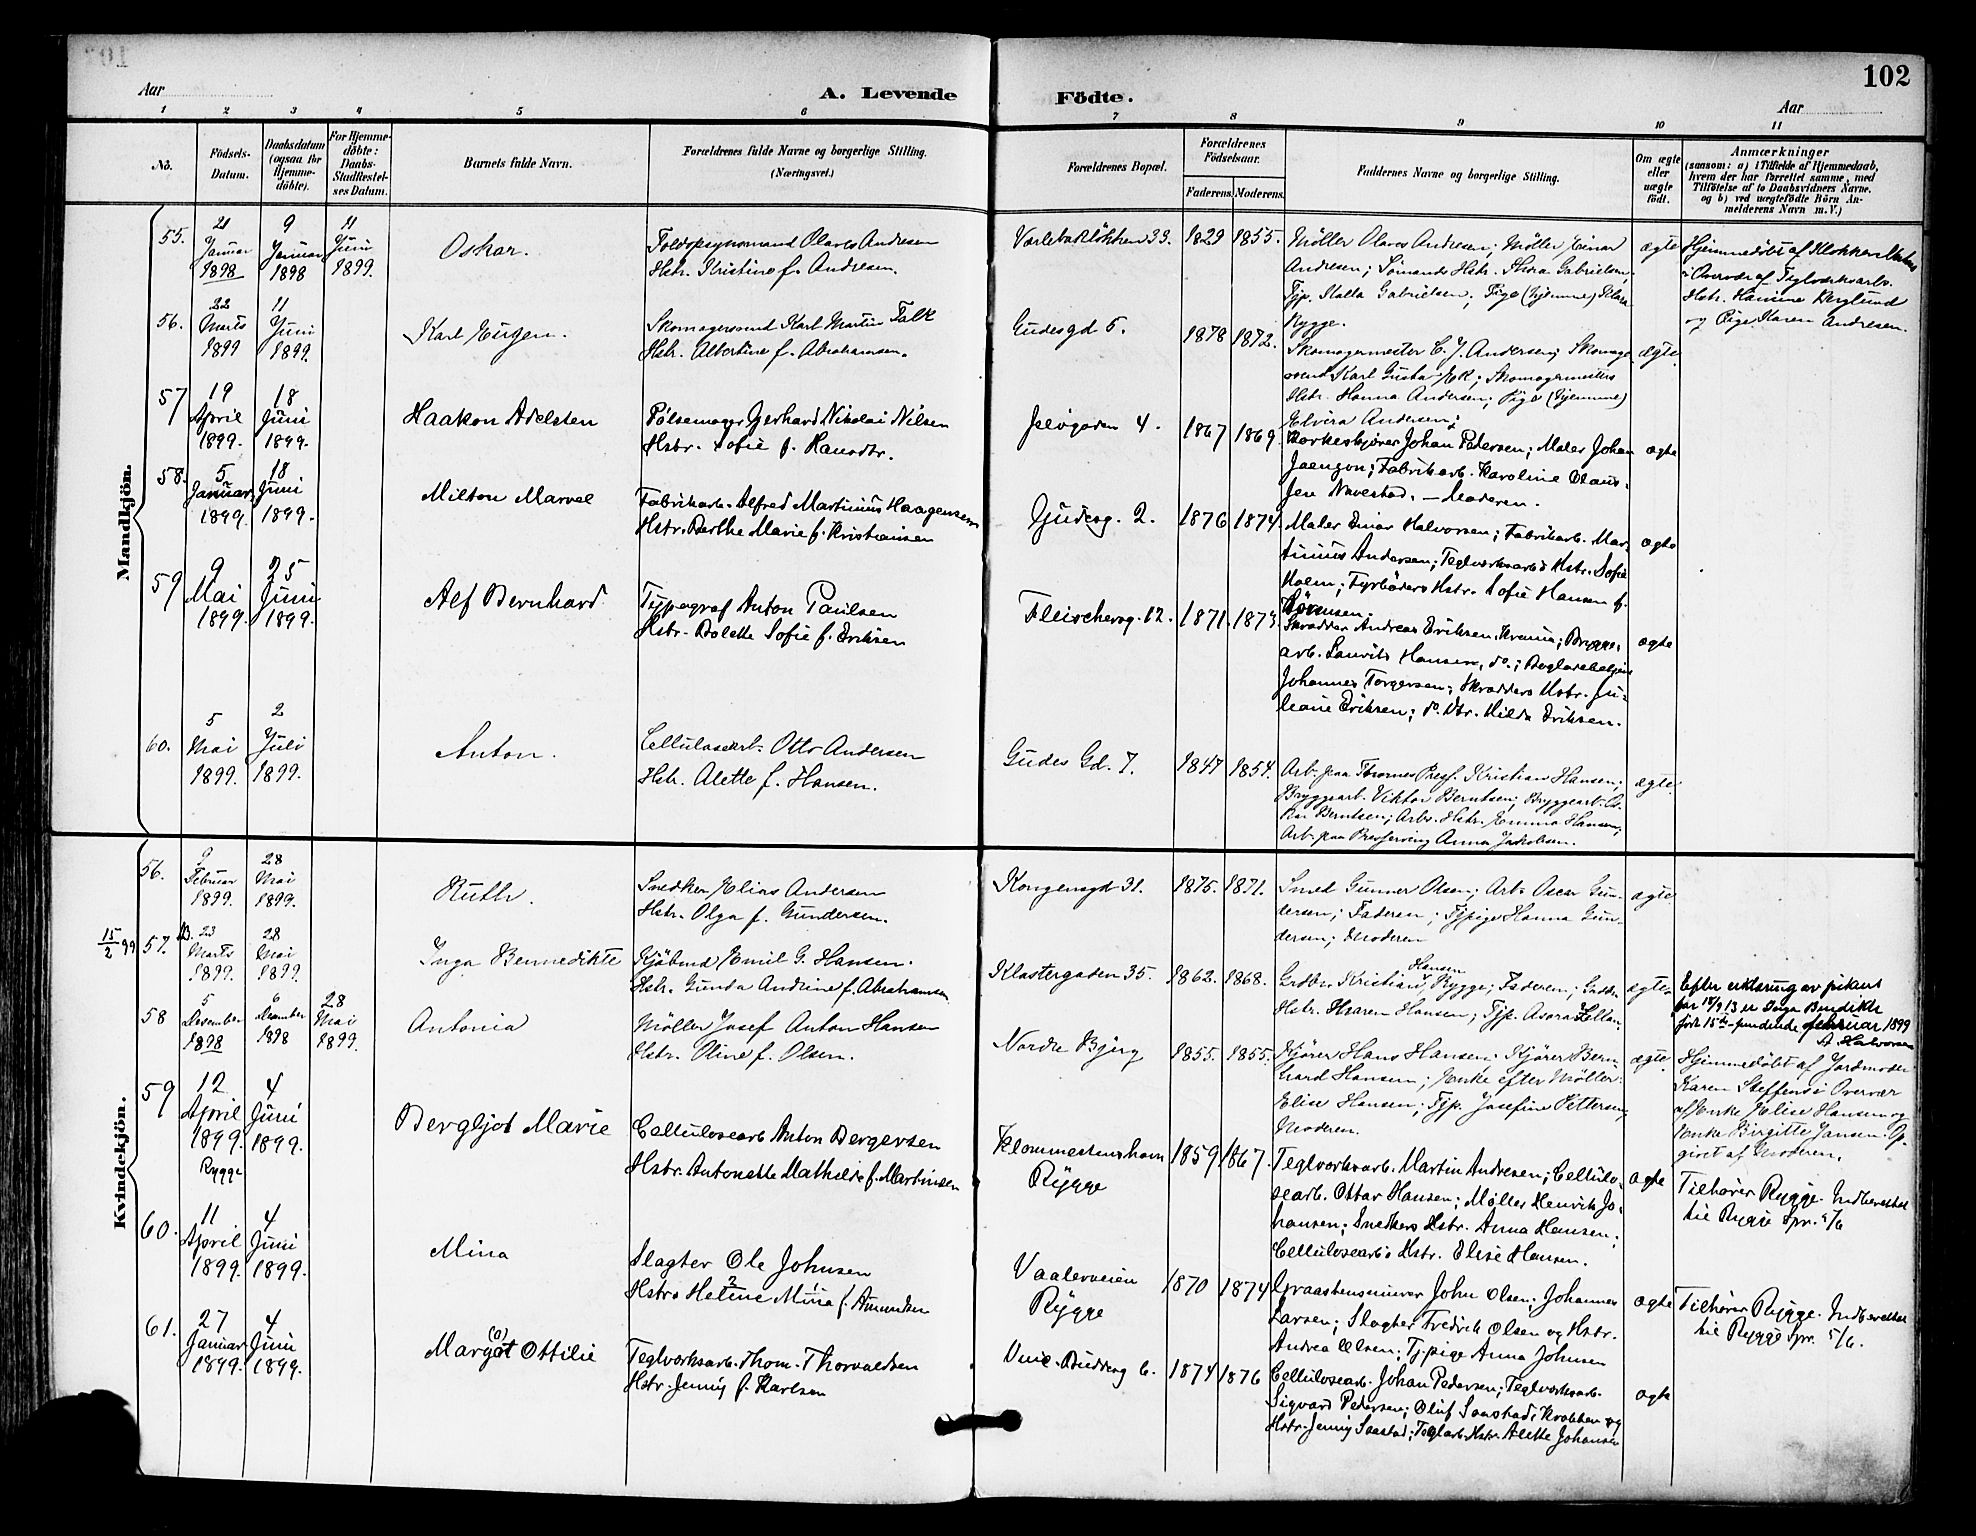 102
Aar
A. Levende Födte.
Aar
1 2 3 4 5 6 7 8 9 10 11
No.
Födsels-Datum.
Daabsdatum (ogsaa for Hjemme-döbte).
For Hjemme-döbte: Daabs-Stadfæstel-ses Datum.
Barnets fulde Navn.
Forældrenes fulde Navne og borgerlige Stilling.
(Næringsvei.)
Forældrenes Bopæl.
Forældrenes Födselsaar.
Faderens. Moderens.
Faddernes Navne og borgerlige Stilling.
Om ægte eller uægte födt.
Anmærkninger
(saasom: a) i Tilfælde af Hjemmedaab,
hvem der har forrettet samme, med
Tilföielse af to Daabsvidners Navne.
og b) ved uægtefödte Börn An-
melderens Navn m. V.)
Mandkjön.
55. 21 Januar 1898 9 Januar 1898 11 Juni 1899.
Oskar.
Olaves Andresen
Hstr. Kristine f. Andresen.
33. 1829 1855.
Möller Olaves Andresen; Möller Einar
Andresen; Sömands Hstr. Thora Gabrielsen;
Tjp. Kalla Gabrielsen; Pige (hjemme)
Rygge.
ægte
Hjemmedöbt af Klokker
i Overvær af Teglværksarb.
Hstr. Hanine Berglund
og Pige Karen Andresen.
56. 22 Marts 1899 11 Juni 1899.
Karl Eugen.
Skomagersvend Karl Martin Falk
Hstr. Albertine f. Abrahamsen.
Gudesgd 5. 1878 1872.
Skomagermester C. J. Andersen; Skomager
svend Karl Gusta Ek; Skomagermesters
Hstr. Hanna Andersen; Pige (hjemme)
Elvira Andersen;
ægte
57 19 April 1899. 18 Juni 1899.
Haakon Adelsten
Pölsemager Gerhard Nikolai Nilsen
Hstr. Sofie f. Hansdtr.
Jelögaden 4. 1867 1869.
Johan Pedersen; Maler Johan
Fabrikarb. Karoline Claus.
Jen Navestad. — Moderen.
ægte
58. 5 Januar 1899. 18 Juni 1899.
Milton Marvel
Fabrikarb. Alfred Martinius Haagensen
Hstr. Berthe Marie f. Kristiansen
Gudesg. 2. 1876 1874.
Maler Einar Halvorsen; Fabrikarb. Mar-
tinius Andersen; Teglværksarb's Hstr. Sofie
Holm; Fyrböders Hstr. Sofie Hansen f.
Sörensen.
ægte
59 9 Mai 1899. 25 Juni 1899.
Alf Bernhard
Typograf Anton Paulsen
Hstr. Bolette Sofie f. Eriksen
Fleischersg. 12. 1871. 1873.
Skrædder Andreas Eriksen, Krania; Brygge-
arb. Laurits Hansen, do.;
Johannes Torgersen; Skrædders Hstr. Ju-
liane Eriksen; do. Dtr. Hilda Eriksen.
ægte
60. 5 Mai 1899. 2 Juli 1899.
Anton.
Cellulosearb. Otto Andersen
Hstr. Alette f. Hansen.
Gudes Gd. 7. 1847 1854.
Arb. paa Thornes Pres. Kristian Hansen;
Bryggearb. Viktor Berntsen; Bryggearb. Os-
kar Berntsen; Arbs. Hstr. Emma Hansen;
Arb. paa Preserving Anna Jakobsen.
ægte.
Kvindekjön.
56. 9 Februar 1899. 28 Mai 1899.
Ruth.
Snedker Elias Andersen
Hstr. Olga f. Gundersen.
Kongensgd 31. 1875. 1871.
Smed Gunner Olsen; Arb. Oscar Gun-
dersen; Faderen; Tjpige Hanna Gun-
dersen; Moderen
ægte
15/2 99
57. 23 Marts 1899. 28 Mai 1899.
Inga Bennedikte
Kjöbmd Emil G. Hansen.
Hstr. Gunda Andrine f. Abrahamsen
Klostergaden 35. 1862. 1868.
Grdbr. Kristian Hansen, Rygge; Faderen; Grdbr.
Hstr. Maren Hansen; Tjp. Asora
ægte
Efter erklæring av
er Inga Benedikte
födt 15de - femtende februar 1899
A. Halvorsen
58 5 Desember 1898 Desember 1898 28 Mai 1899.
Antonia
Möller Josef Anton Hansen
Hstr. Oline f. Olsen.
Nordre Bjerg 1855. 1855.
Kjörer Hans Hansen; Kjörer Bern-
hard Hansen; Enke efter Möller
Elise Hansen; Tjp. Josefine Pettersen;
Moderen.
ægte
Hjemmedöbt af Jordmoder
Karen Steffens i Overvær
af Enke Elise Hansen og
Enke Birgitte Jansen. Op-
givet af Moderen.
59 12 April 1899. Rygge 4 Juni 1899.
Bergljot Marie
Cellulosearb. Anton Bergersen
Hstr. Antonette Mathilde f. Martinsen
Klommestenshavn
Rygge
1859. 1867.
Teglværksarb. Martin Andresen; Cellulo-
searb. Ottar Hansen; Möller Henrik Jo-
hansen; Snedkers Hstr. Anna Hansen;
Cellulosearb's Hstr. Elise Hansen.
ægte
Tilhörer Rygge. Indberettet
til Rygge Spr. 5/6
60. 11 April 1899. 4 Juni 1899.
Mina
Slagter Ole Johnsen
Hstr. Heline Mina f. Amundsen
Vaalerveien
Rygge
1870 1874
Graastensminer John Olsen; Johannes
Larsen; Slagter Fredrik Olsen og Hstr.
Andrea Olsen; Tjpige Anna Johnsen
ægte
Tilhörer Rygge. Indberettet
til Rygge Spr. 5/6.
61. 27 Januar 1899. 4 Juni 1899.
Margot (o) Ottilie
Teglværksarb. Thom. Thorvaldsen
Hstr. Jenny f. Karlsen
6. 1874 1876
Cellulosearb. Johan Pedersen; Teglværksarb.
Sigvard Pedersen; Oluf Saastad, Krokken og
Hstr. Jenny Saastad; Teglarb. Hstr. Alette Johansen
ægte